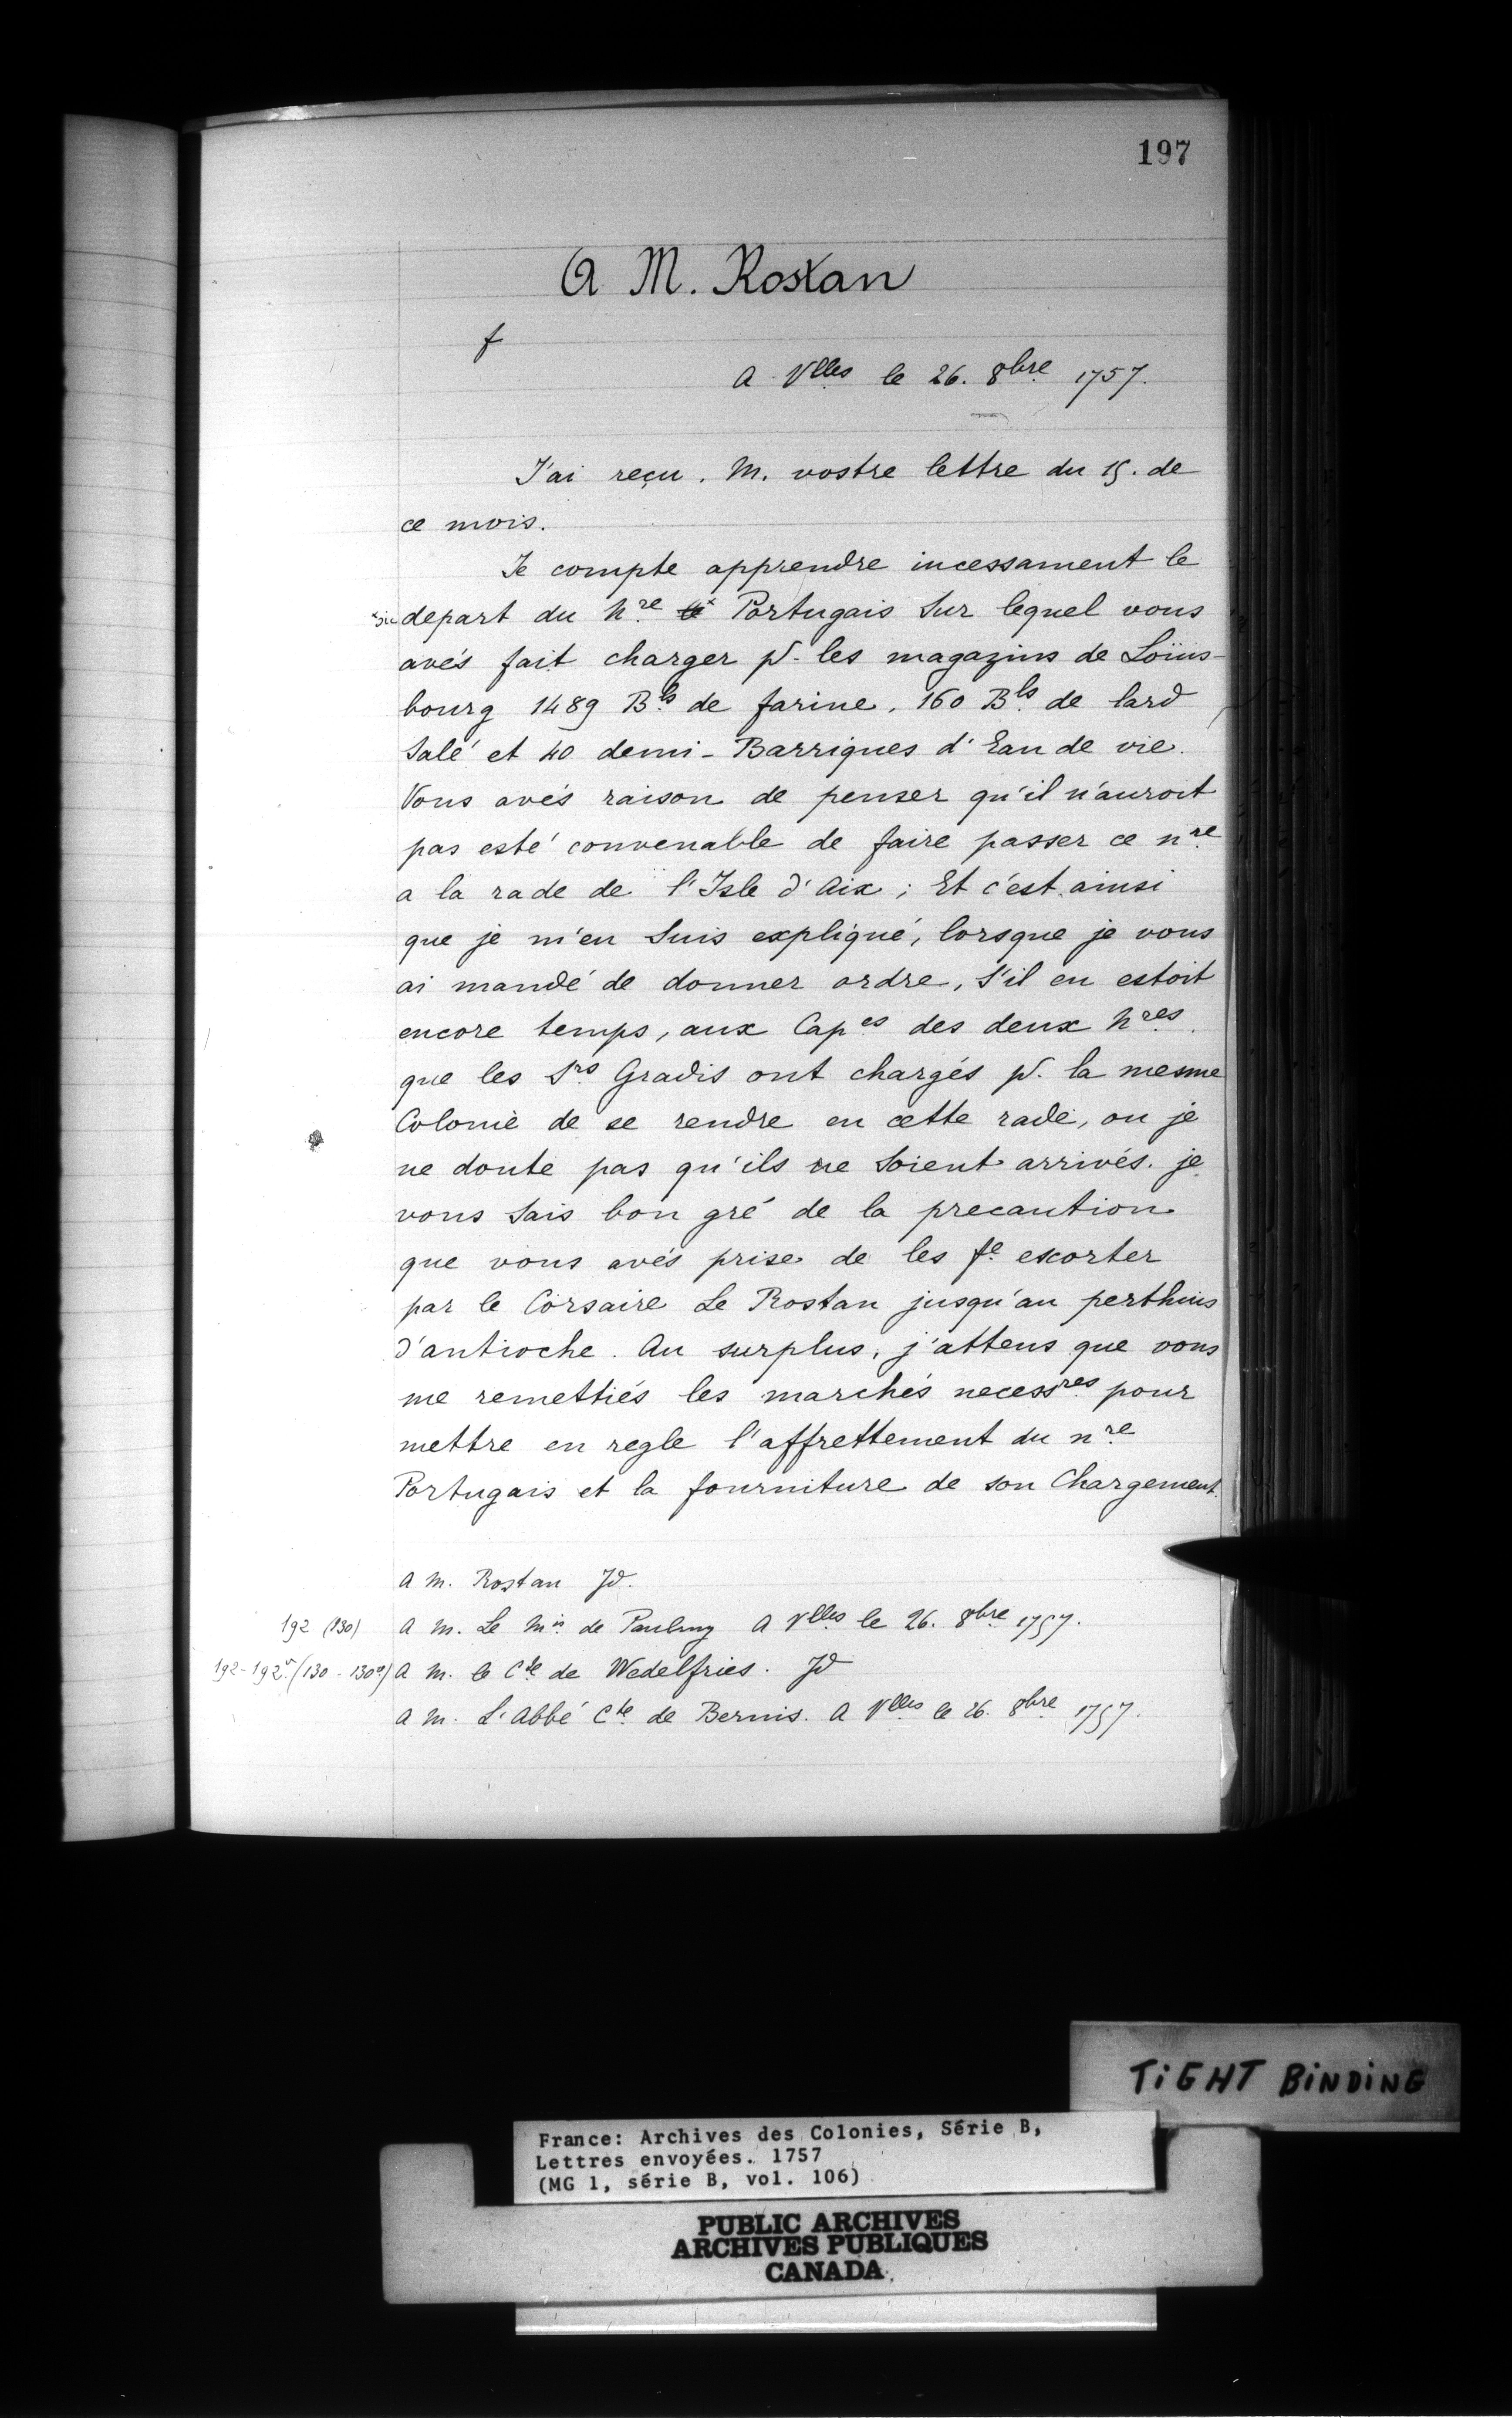 197
A M. Rostan
f
A Vlles le 26. 8bre 1757.
J'ai reçu. M. vostre lettre du 15. de
ce mois.
Je compte apprendre incessament le
xsic depart du Nre le x Portugais Sur lequel vous
avés fait charger pr les magazins de Loüis-
bourg 1489 Bls de farine, 160 Bls de lard
Salé et 40 demi-Barriques d'Eau de vie.
Vous avés raison de penser qu'il n'auroit
pas esté convenable de faire passer ce nre
a la rade de l'Isle d'Aix; Et c'est ainsi
que je m'en Suis expliqué, lorsque je vous
ai mandé de donner ordre, S'il en estoit
encore temps, aux Capes des deux Nres
que les Srs Gradis ont chargés pr la mesme
Colonie de se rendre en cette rade, ou je
ne doute pas qu'ils ne Soient arrivés. je
vous Sais bon gré de la precaution
que vous avés prise de les fe escorter
par le Corsaire Le Rostan jusqu'au perthuis
d'antioche. Au surplus, j'attens que vous
me remettiés les marchés necessres pour
mettre en regle l'affrettement du nre
Portugais et la fourniture de son Chargement.
A M. Rostan Jd.
192 (130) A M. Le Mis de Paulmy A Vlles le 26. 8bre 1757.
192-192v (130-130v) A M. le Cte de Wedelfries. Jd
A M. L'Abbé Cte de Bernis. A Vlles le 26. 8bre 1757.
TIGHT BINDING
France: Archives des Colonies, Série B,
Lettres envoyées. 1757
(MG 1, série B, vol. 106)
PUBLIC ARCHIVES
ARCHIVES PUBLIQUES
CANADA